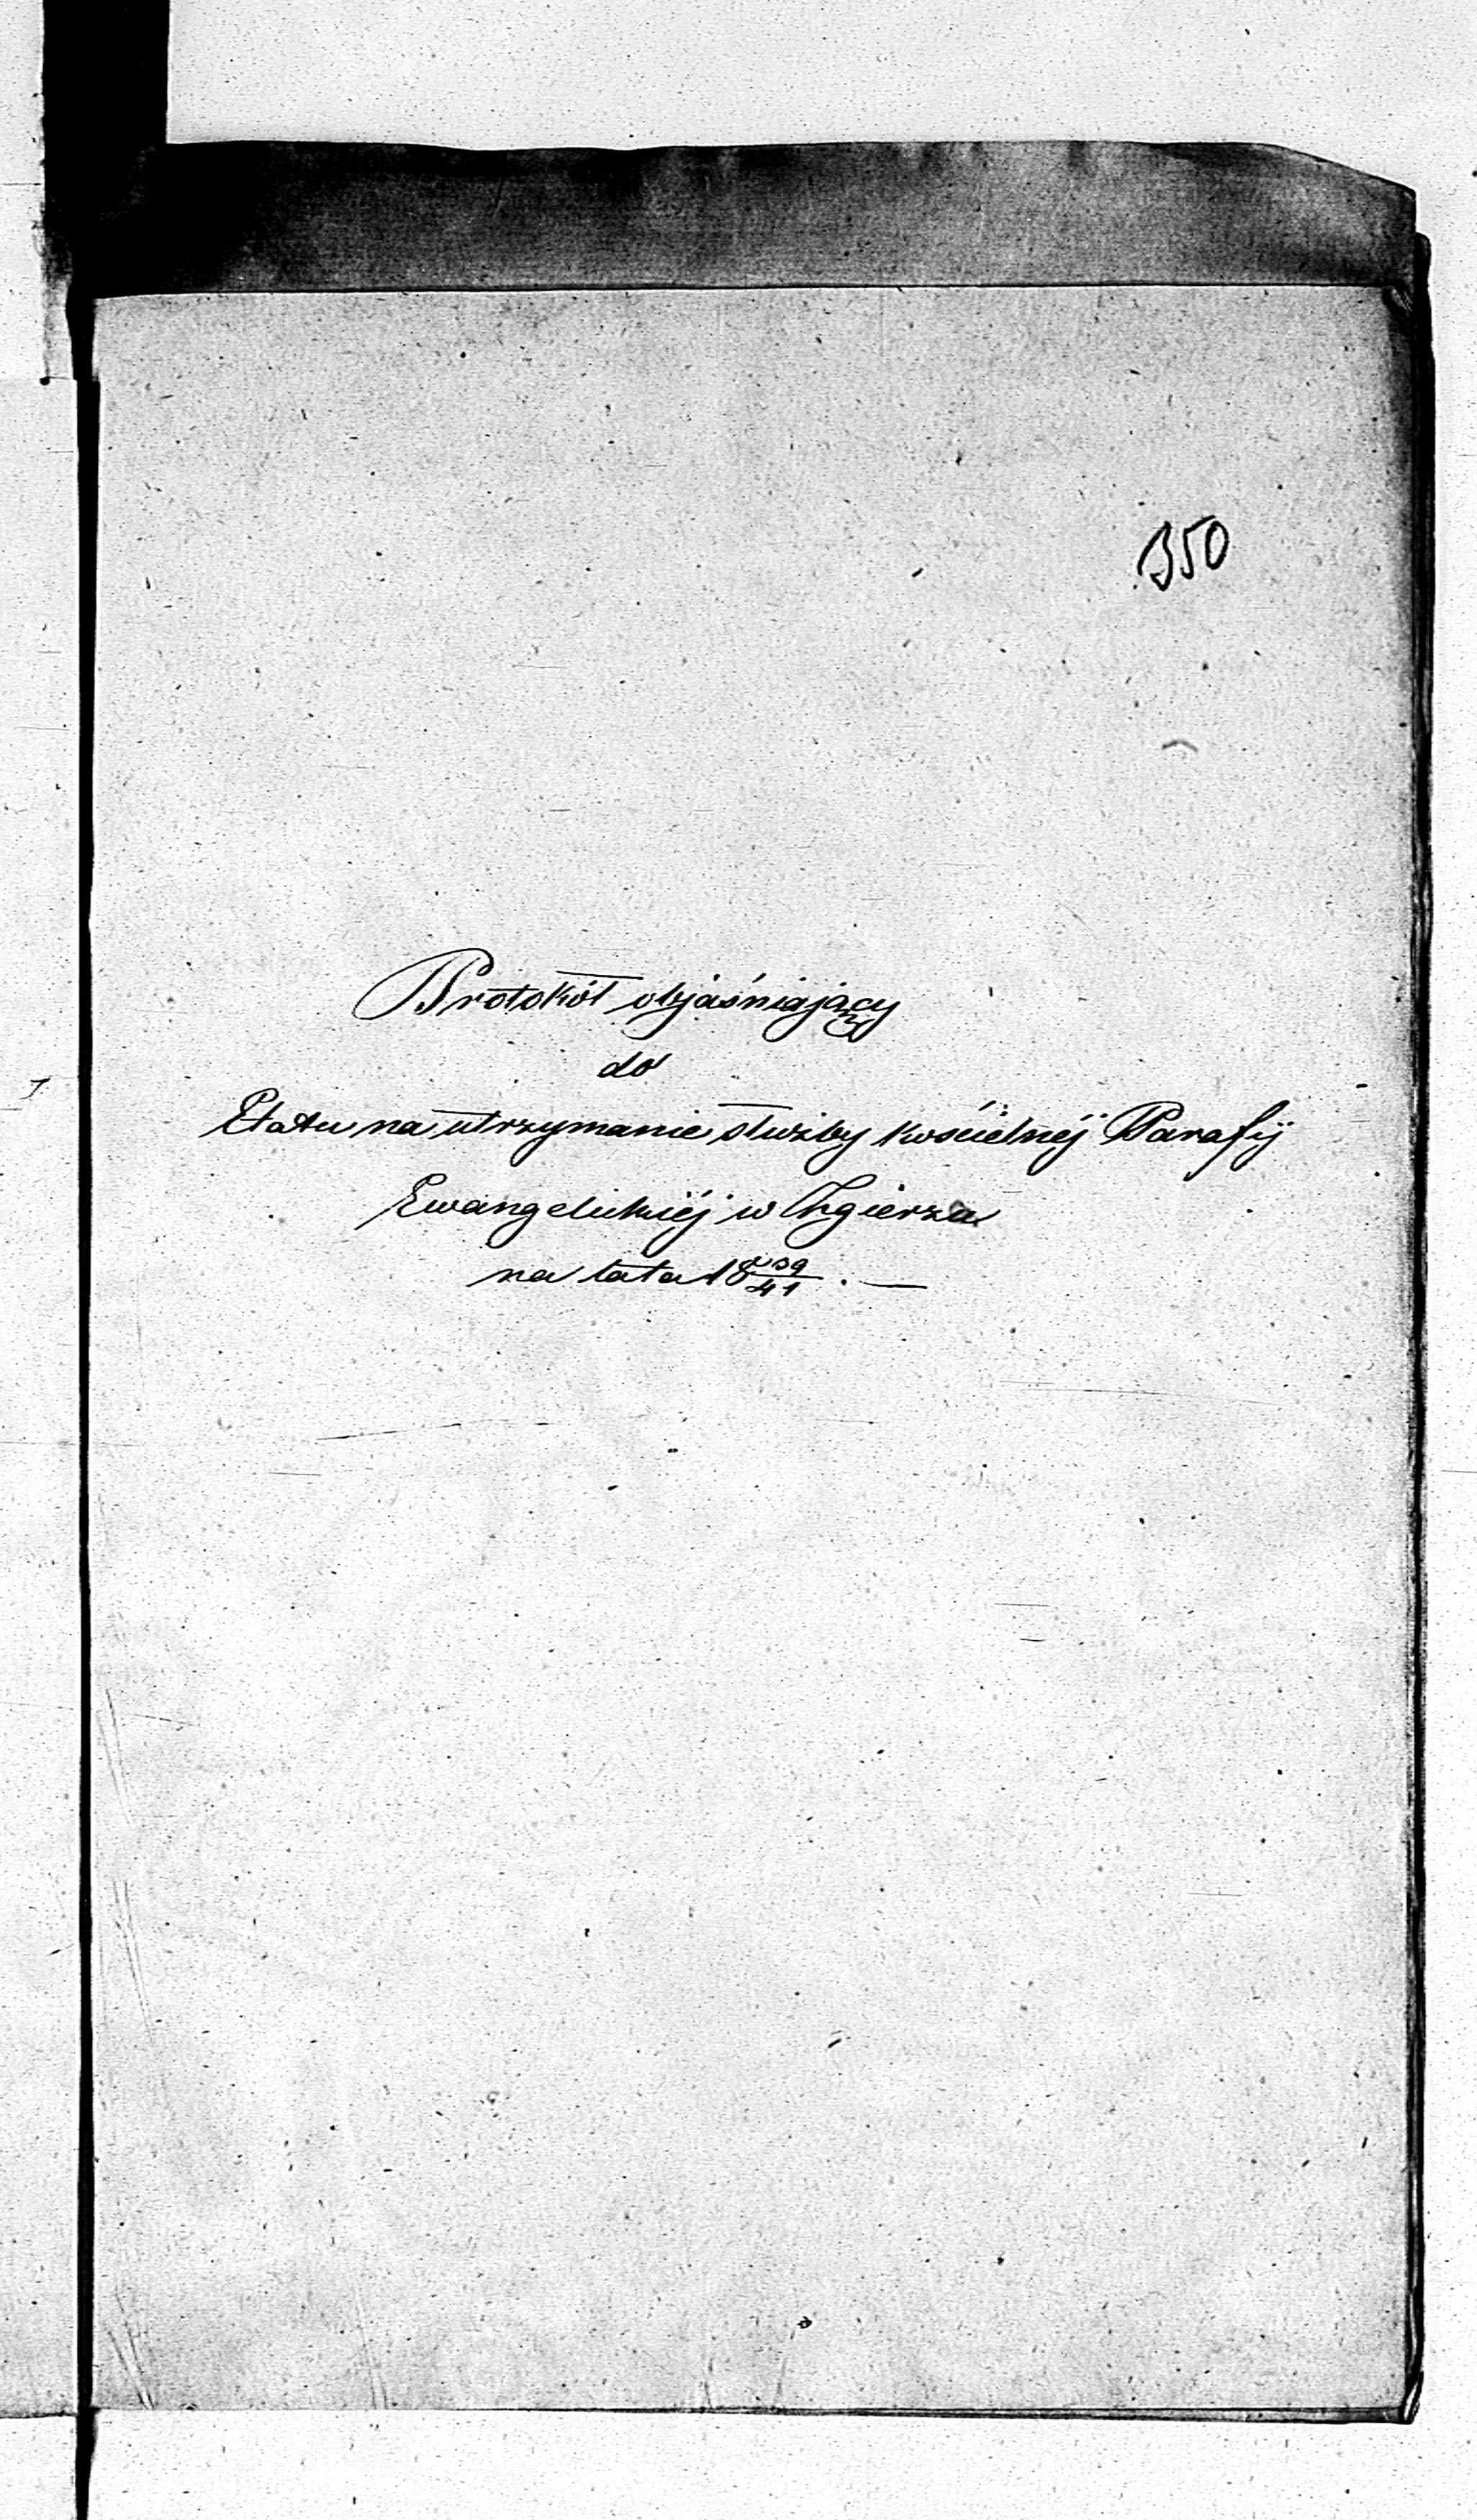 350
Protokół objaśniający
do
Etatu na utrzymanie służby kościelnéj Parafij
Ewangelickiéj w Zgierzu
na lata 18 39/41. —